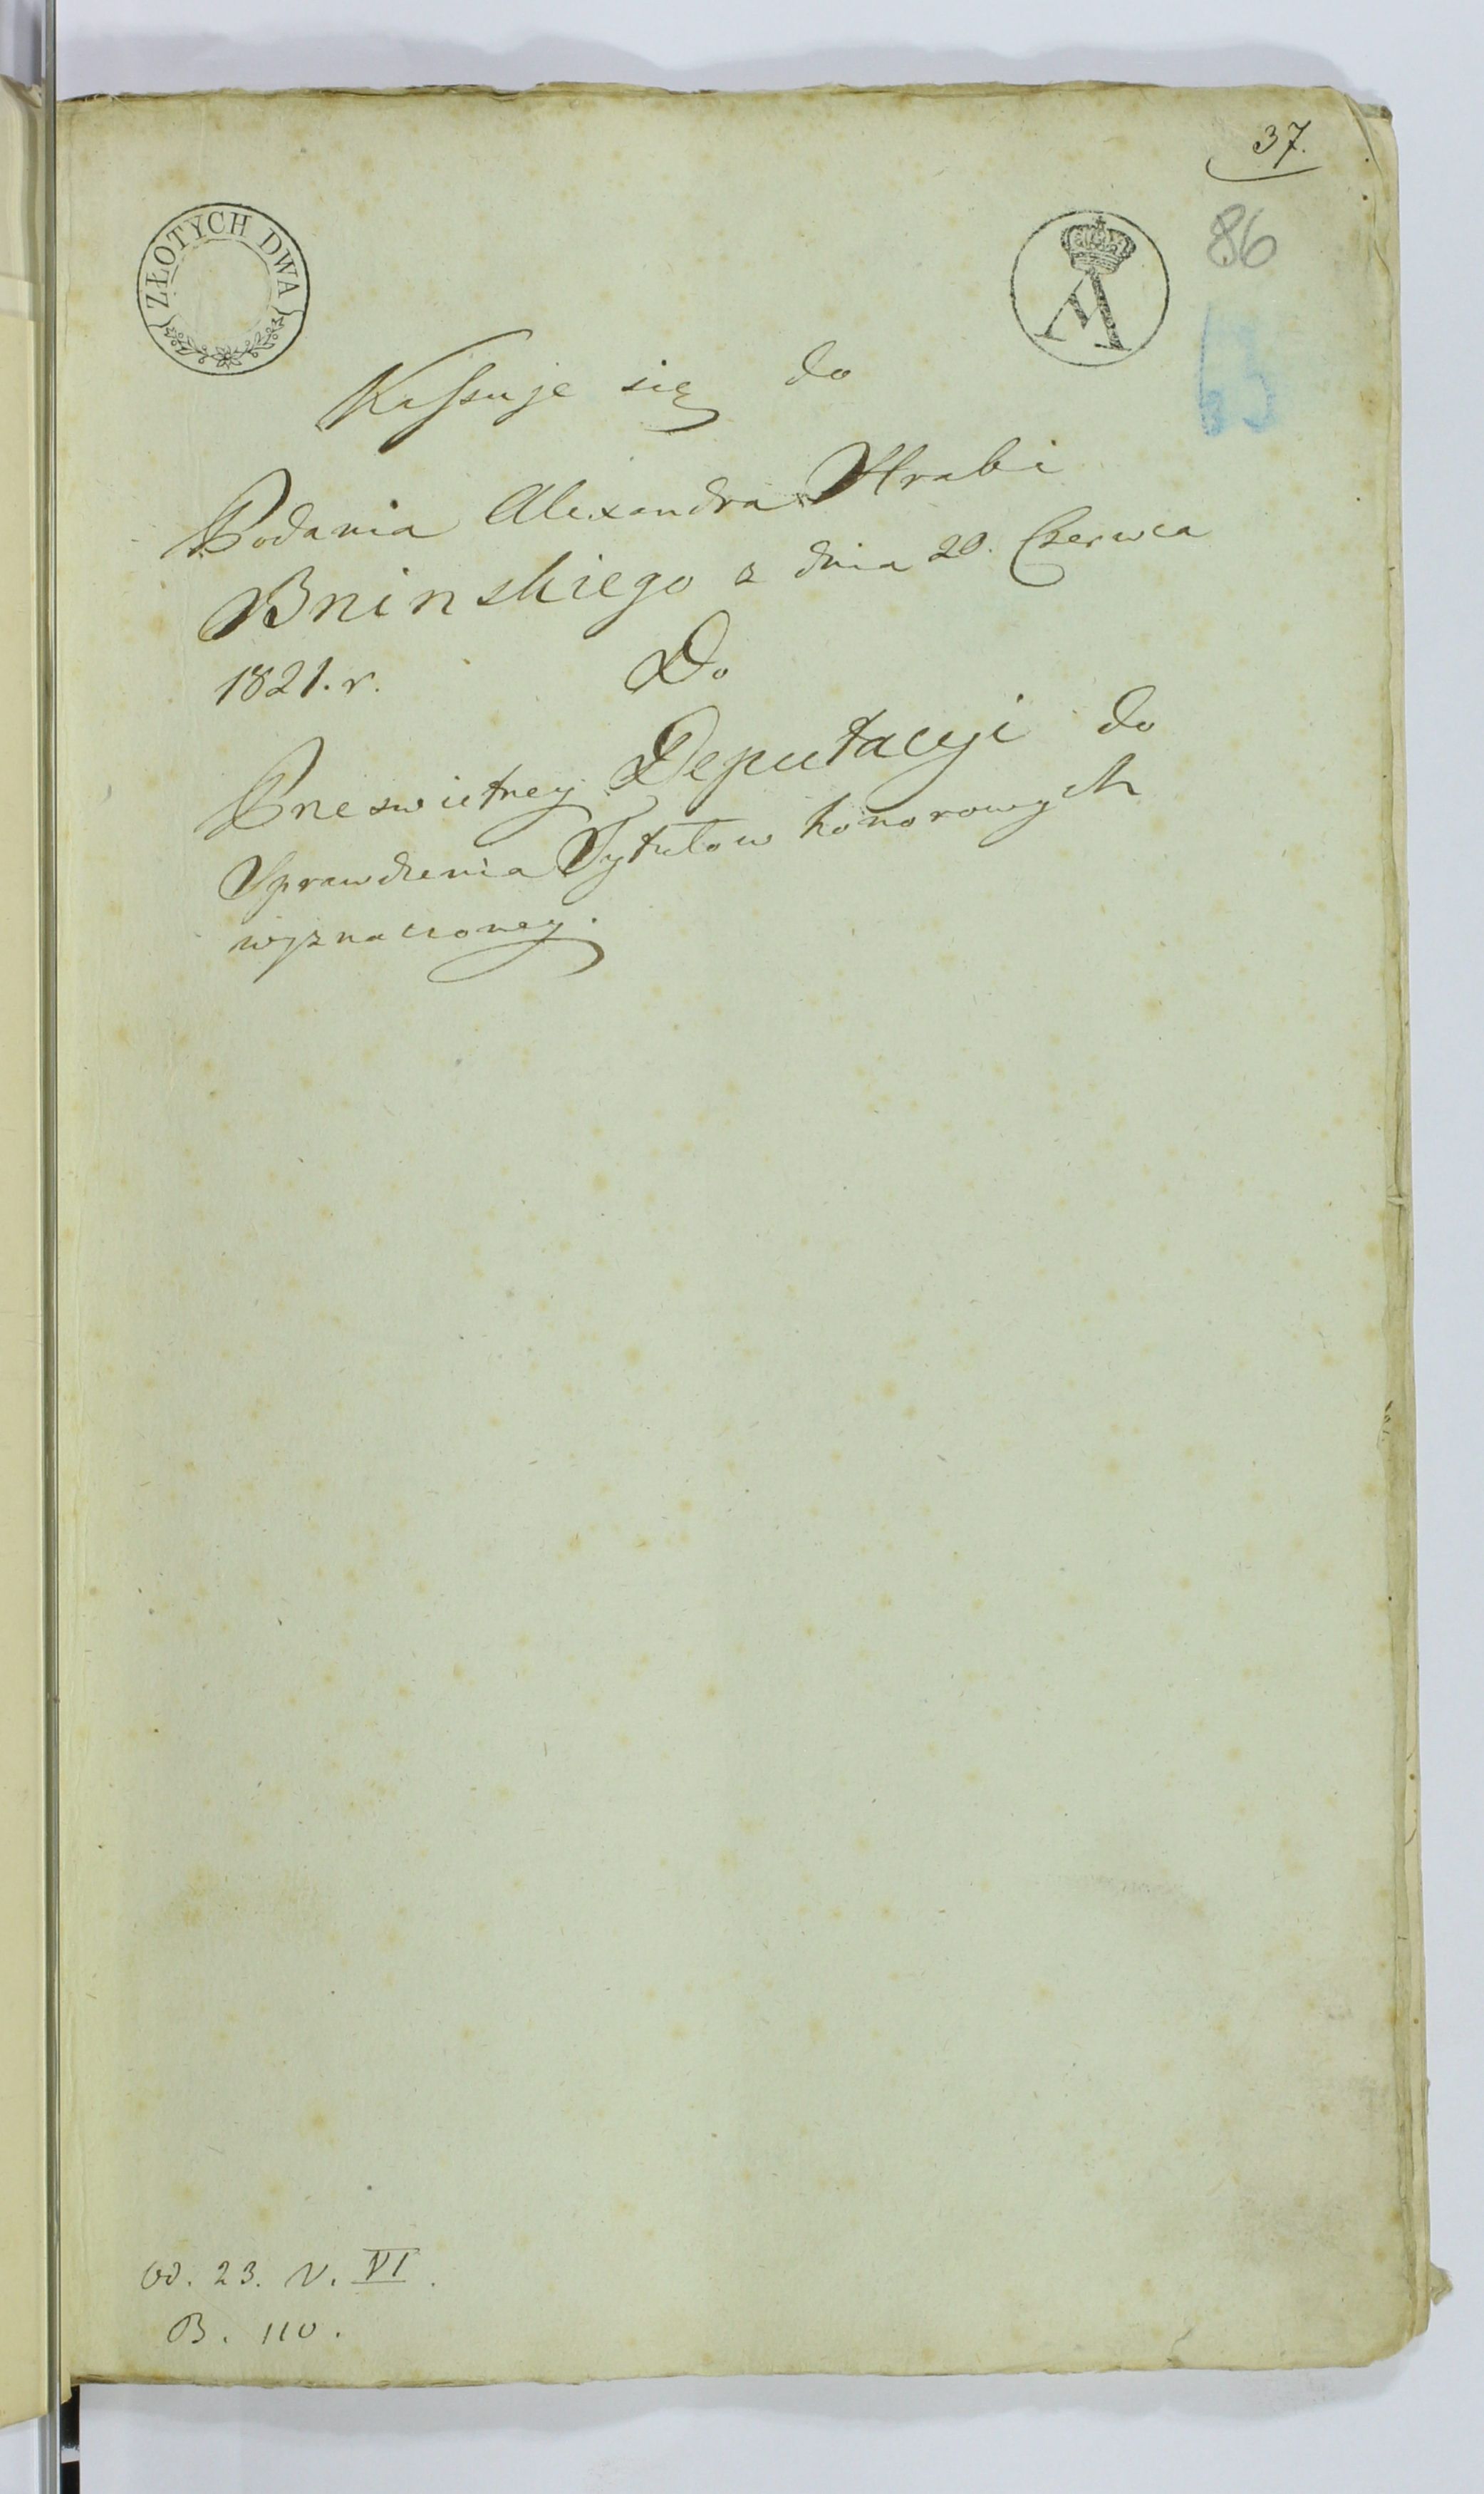 37.
86
ZŁOTYCH DWA
Kassuje się do
Podania Alexandra Hrabi
Bninskiego z dnia 20. Czerwca
1821. r. Do
Przeswietney Deputacyi do
Sprawdzenia Tytułow honorowych
wyznaczoney.
od. 23. N. VI.
B. 110.